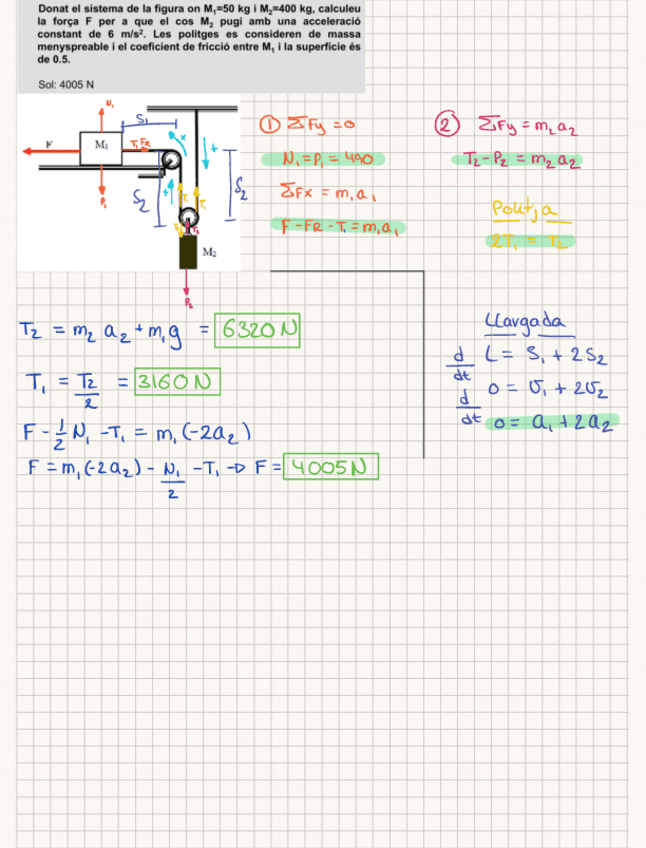 Donat el sistema de la figura on M₁=50 kg i M₂=400 kg, calculeu
la força F per a que el cos M₂ pugi amb una acceleració
constant de 6 m/s². Les politges es consideren de massa
menyspreable i el coeficient de fricció entre M₁ i la superfície és
de 0.5.
Sol: 4005 N
N₁
S₁
F
M₁
T₁ FR
x
+
+
P₁
S₂
S₂
T₁
T₁
T₂
T₂
M₂
P₂
① ΣFy = 0
N₁ = P₁ = 490
ΣFx = m₁a₁
F - FR - T₁ = m₁a₁
② ΣFy = m₂a₂
T₂ - P₂ = m₂a₂
Politja
2T₁ = T₂
Llargada
d/dt L = S₁ + 2S₂
d/dt 0 = v₁ + 2v₂
0 = a₁ + 2a₂
T₂ = m₂ a₂ + m₁g = 6320 N
T₁ = T₂/2 = 3160 N
F - 1/2 N₁ - T₁ = m₁(-2a₂)
F = m₁(-2a₂) - N₁/2 - T₁ → F = 4005 N